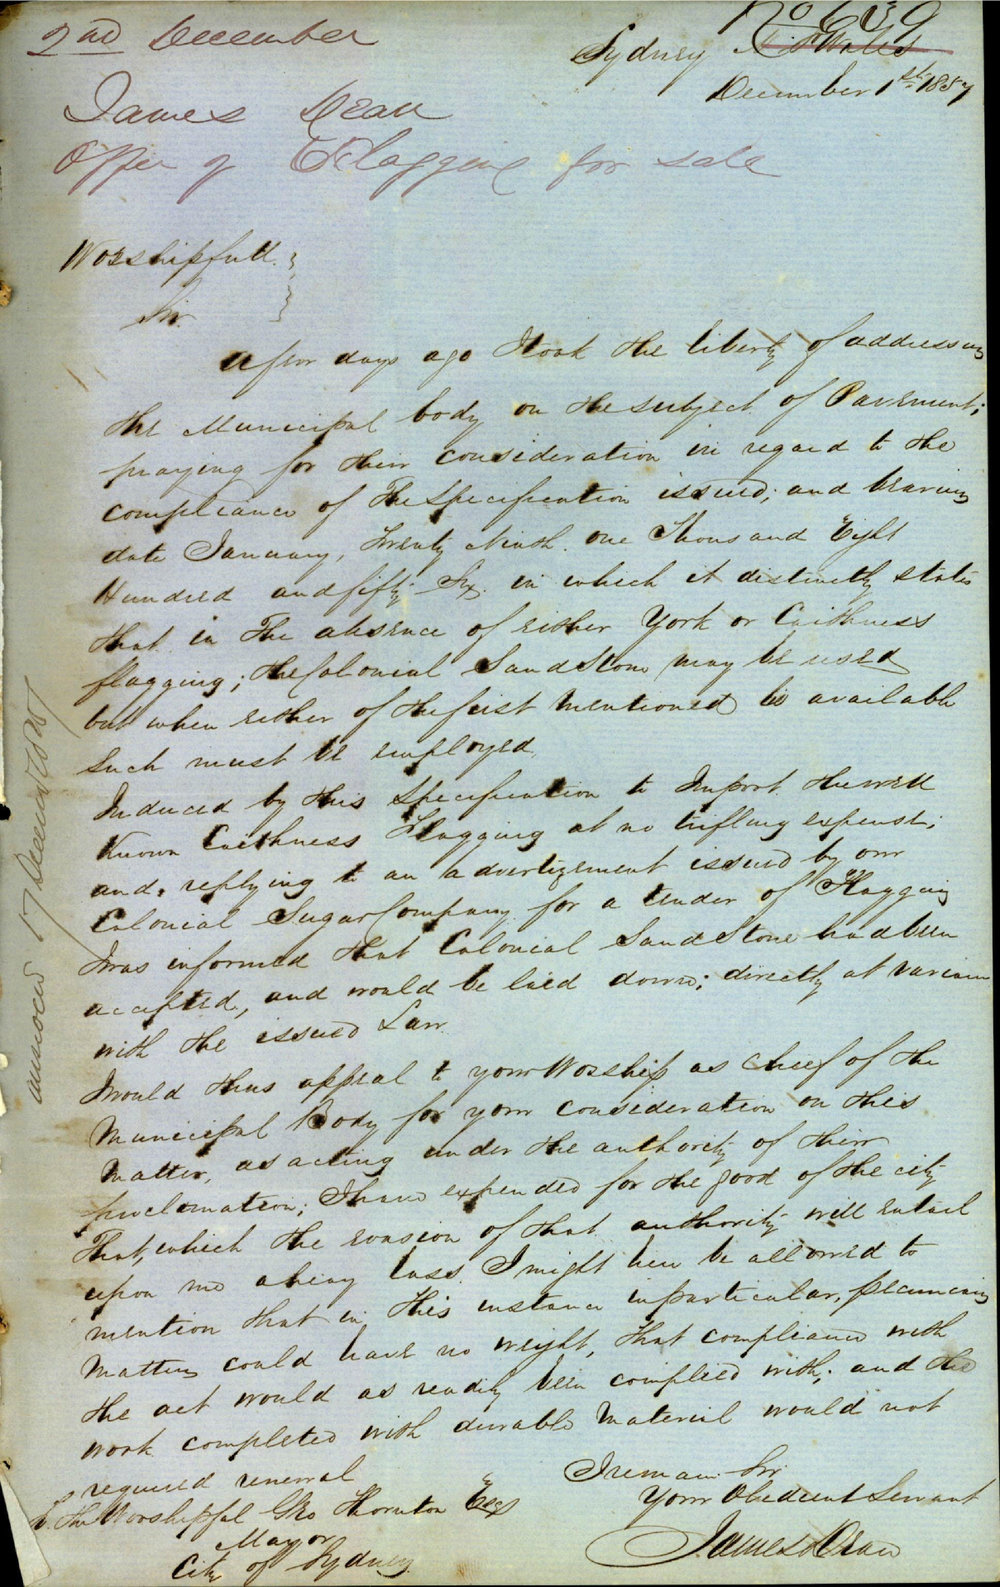 No 639
2nd December
Sydney N.S. Wales
December 1st 1857
James Dean
Offer of Flagging for sale
Worshipfull
Sir
a few days ago I took the liberty of addressing
the Municipal body on the subject of Pavement;
praying for their consideration in regard to the
compliance of The Specification issued; and bearing
date January, Twenty Ninth. one Thousand Eight
Hundred and fifty Six. in which it distinctly states
that in The absence of either York or Caithness
flagging; the Colonial Sand Stone may be used
but when either of the first mentioned is available
Such must be employed
Induced by this Specification to Import the well
Known Caithness Flagging at no trifling expense;
and, replying to an advertizement issued by our
Colonial Sugar Company for a tender of Flagging
I was informed that Colonial Sand Stone had been
accepted, and would be laid down; directly at variance
with the issued Law.
I would thus appeal to your Worship as chief of the
Municipal Body for your consideration on this
Matter, as acting under the authority of their
proclamation; I have expended for the good of the city
That, which the evasion of that authority will entail
upon me a heavy loss. I might here be allowed to
mention that in this instance in particular, pecuniary
Matters could have no weight, that compliance with
the act would as readily been complied with; and the
work completed with durable Material would not
required renewal
I remain Sir
Your Obedient Servant
James Dean
To The Worshipful Geo Thornton Esq
Mayor
City of Sydney
answered 17 December 1857